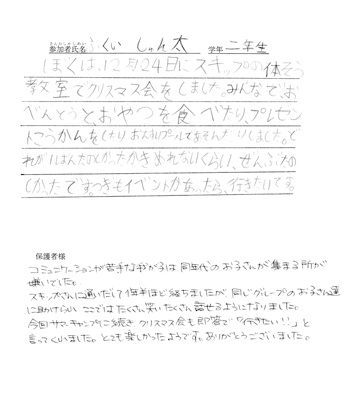 さんかしゃしめい
参加者氏名 ふくい しゅん太 学年 二年生
ぼくは、12月24日にスキップの体そう
教室でクリスマス会をしました。みんなで、お
べんとうと、おやつを食べたり、プレゼン
トこうかんをしたり、おんすいプールであそんだりしました。ど
れがいちばんたのしかったかきめれないくらい、ぜんぶたの
しかったです。つぎもイベントがあったら、行きたいです。
保護者様
コミュニケーションが苦手な我が子は同年代のお子さんが集まる所が
嫌いでした。
スキップさんに通いだして1年半ほど経ちましたが、同じグループのお子さん達
に助けらい ここではたくさん笑いたくさん話せるようになりました。
今回サマーキャンプに続き クリスマス会も即答で「行きたい!!」と
言ってくいました。とても楽しかったようです。ありがとうございました。